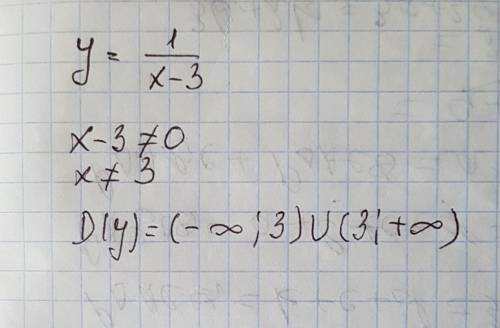 y = 1/(x-3)
x-3≠0
x≠3
D(y)=(-∞;3)∪(3;+∞)